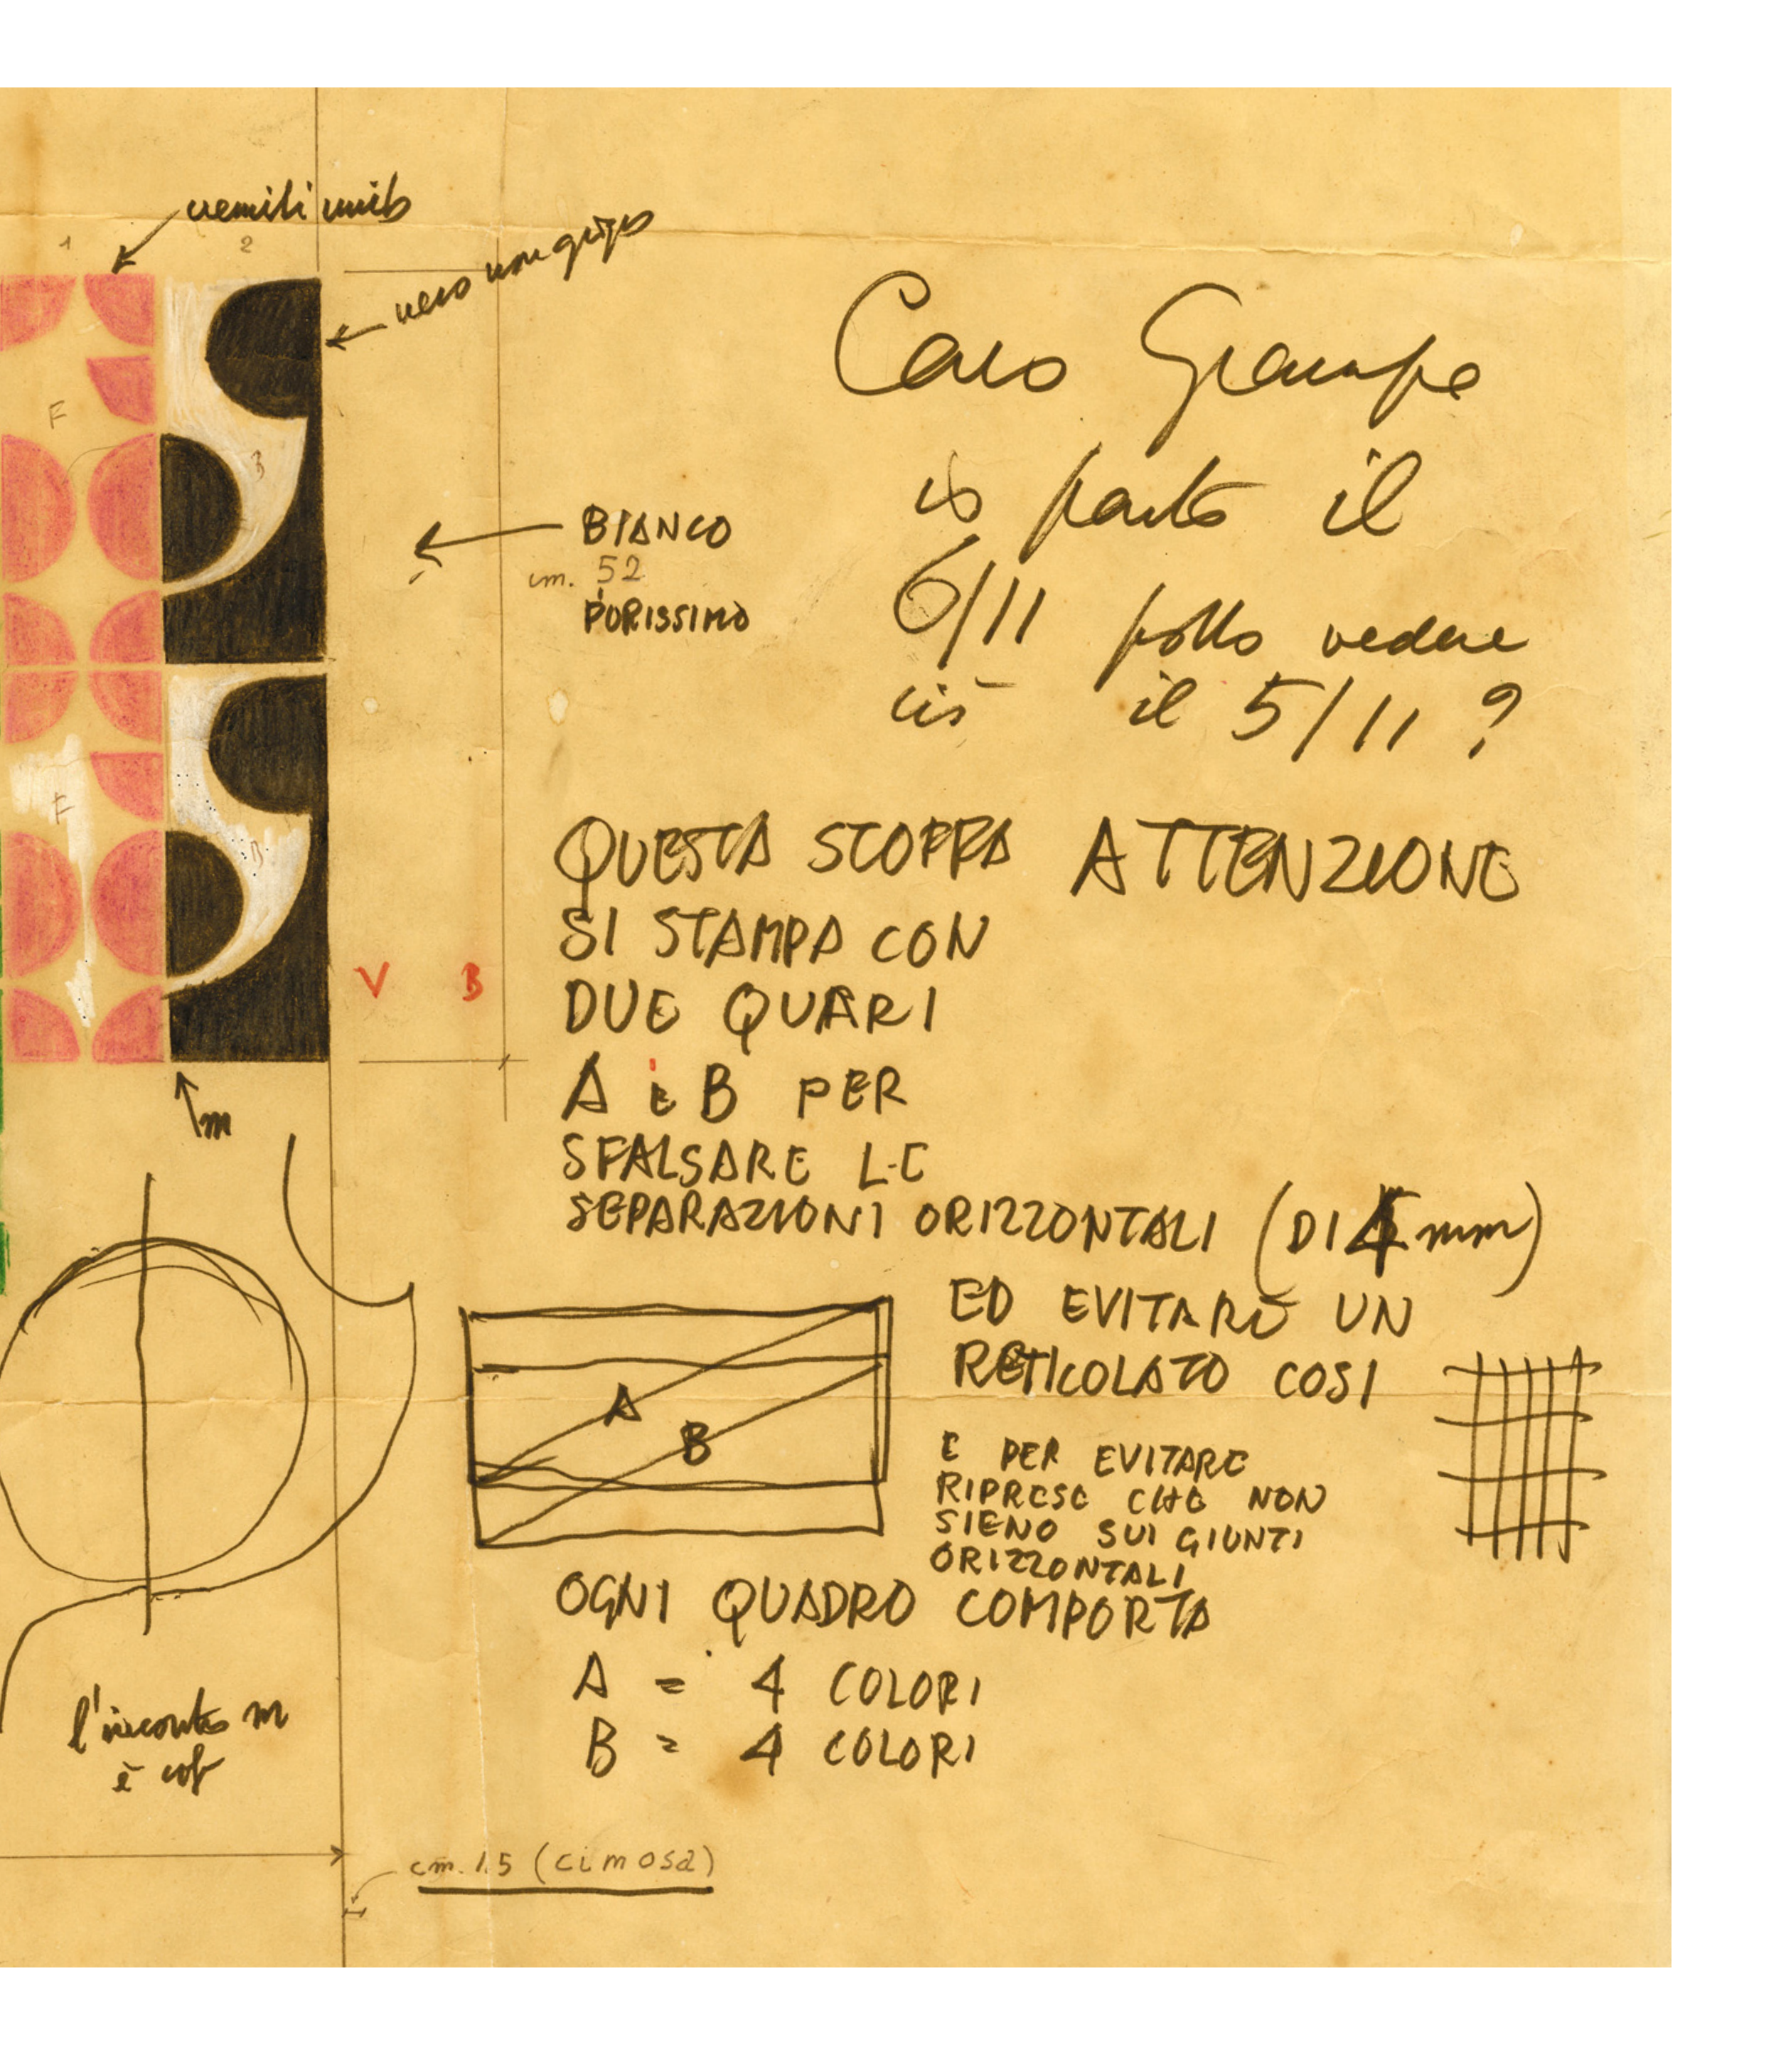 1
2
nero non grigio
F
B
BIANCO
cm. 52
PURISSIMO
Caro Giampo
io parto il
6/11 posso vedere
ciò il 5/11 ?
QUESTA STOFFA ATTENZIONE
SI STAMPA CON
DUE QUARI
A E B PER
SFALSARE LE
SEPARAZIONI ORIZZONTALI (DI 4 mm)
ED EVITARE UN
RETICOLATO COSI
E PER EVITARE
RIPRESE CHE NON
SIENO SUI GIUNTI
ORIZZONTALI
F
B
V B
m
A
B
OGNI QUADRO COMPORTA
A = 4 COLORI
B = 4 COLORI
l'incontro m
è così
cm. 1.5 (cimosa)